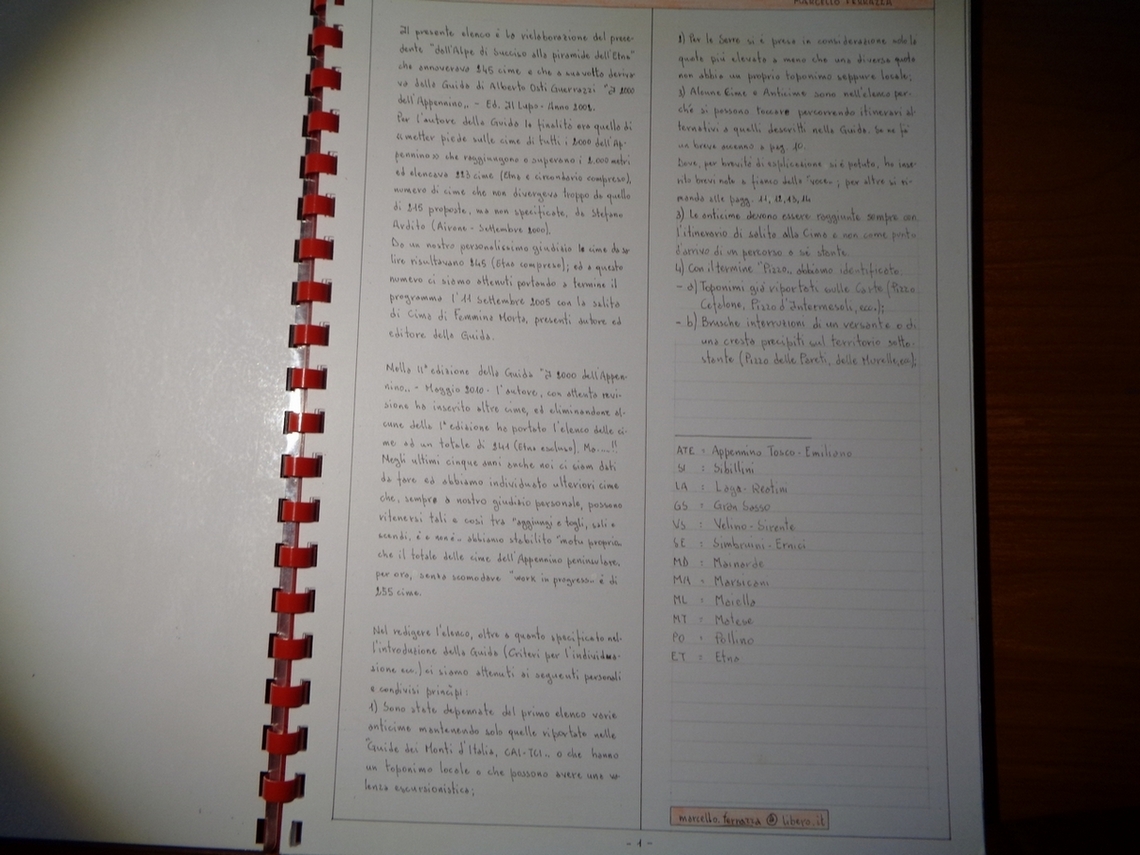 MARCELLO FERRAZZA
Il presente elenco è la rielaborazione del prece-
dente "dall'Alpe di Succiso alla piramide dell'Etna"
che annoverava 245 cime e che a sua volta deriva-
va della Guida di Alberto Osti Guerrazzi "I 2000
dell'Appennino„ - Ed. Il Lupo - Anno 2002.
Per l'autore della Guida la finalità era quella di
«metter piede sulle cime di tutti i 2000 dell'Ap-
pennino» che raggiungono o superano i 2.000 metri
ed elencava 223 cime (Etna e circondario compreso),
numero di cime che non divergeva troppo da quello
di 215 proposte, ma non specificate, da Stefano
Ardito (Airone - Settembre 2000).
Da un nostro personalissimo giudizio le cime da sa-
lire risultavano 245 (Etna compreso); ed a questo
numero ci siamo attenuti portando a termine il
programma l'11 Settembre 2005 con la salita
di Cima di Femmina Morta, presenti autore ed
editore della Guida.
Nella IIª edizione della Guida "I 2000 dell'Appen-
nino„ - Maggio 2010 - l'autore, con attenta revi-
sione ha inserito altre cime, ed eliminandone al-
cune della 1ª edizione ha portato l'elenco delle ci-
me ad un totale di 241 (Etna escluso). Ma....!!
Negli ultimi cinque anni anche noi ci siam dati
da fare ed abbiamo individuato ulteriori cime
che, sempre a nostro giudizio personale, possono
ritenersi tali e così tra "aggiungi e togli, sali e
scendi, è e non è„ abbiamo stabilito "motu proprio„
che il totale delle cime dell'Appennino peninsulare,
per ora, senza scomodare "work in progress„ è di
255 cime.
Nel redigere l'elenco, oltre a quanto specificato nel-
l'introduzione della Guida (Criteri per l'individua-
zione ecc.) ci siamo attenuti ai seguenti personali
e condivisi principi:
1) Sono state depennate dal primo elenco varie
anticime mantenendo solo quelle riportate nelle
"Guide dei Monti d'Italia, CAI-TCI„ o che hanno
un toponimo locale o che possono avere una va-
lenza escursionistica;
2) Per le Serre si è presa in considerazione solo la
quota più elevata a meno che una diversa quota
non abbia un proprio toponimo seppure locale;
3) Alcune Cime e Anticime sono nell'elenco per-
chè si possono toccare percorrendo itinerari al-
ternativi a quelli descritti nella Guida. Se ne fa
un breve accenno a pag. 10.
Dove, per brevità di esplicazione si è potuto, ho inse-
rito brevi note a fianco della "voce„; per altre si ri-
manda alle pagg. 11, 12, 13, 14
3) Le anticime devono essere raggiunte sempre con
l'itinerario di salita alla Cima e non come punto
d'arrivo di un percorso a sé stante.
4) Con il termine "Pizzo„ abbiamo identificato.
- a) Toponimi già riportati sulle Carte (Pizzo
Cefalone, Pizzo d'Intermesoli, ecc.);
- b) Brusche interruzioni di un versante o di
una cresta precipiti sul territorio sotto-
stante (Pizzo delle Pareti, delle Murelle, ecc);
ATE : Appennino Tosco - Emiliano
SI : Sibillini
LA : Laga - Reatini
GS : Gran Sasso
VS : Velino - Sirente
SE : Simbruini - Ernici
MD : Mainarde
MA : Marsicani
ML : Maiella
MT : Matese
PO : Pollino
ET : Etna
marcello.ferrazza @ libero.it
- 1 -